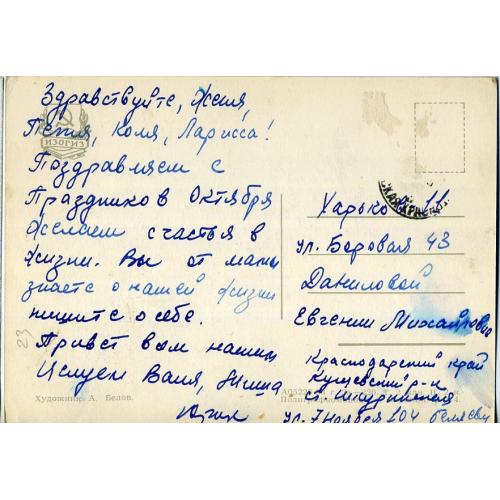 Здравствуйте, Женя,
Петя, Коля, Ларисса!
ИЗОГИЗ
Поздравляем с
Праздников Октября
Желаем счастья в
жизни. Вы от мамы
знаете о нашей жизни
пищите о себе.
Привет вам нашим
Целуем Валя, Миша
Художник А. Белов.
23
Харьков 11
ул. Боровая 43
Даниловой
Евгении Михайловне
Краснодарский край
Кущевский р-н
ст. Шкуринская
ул. 7 Ноября 104 Беляевы